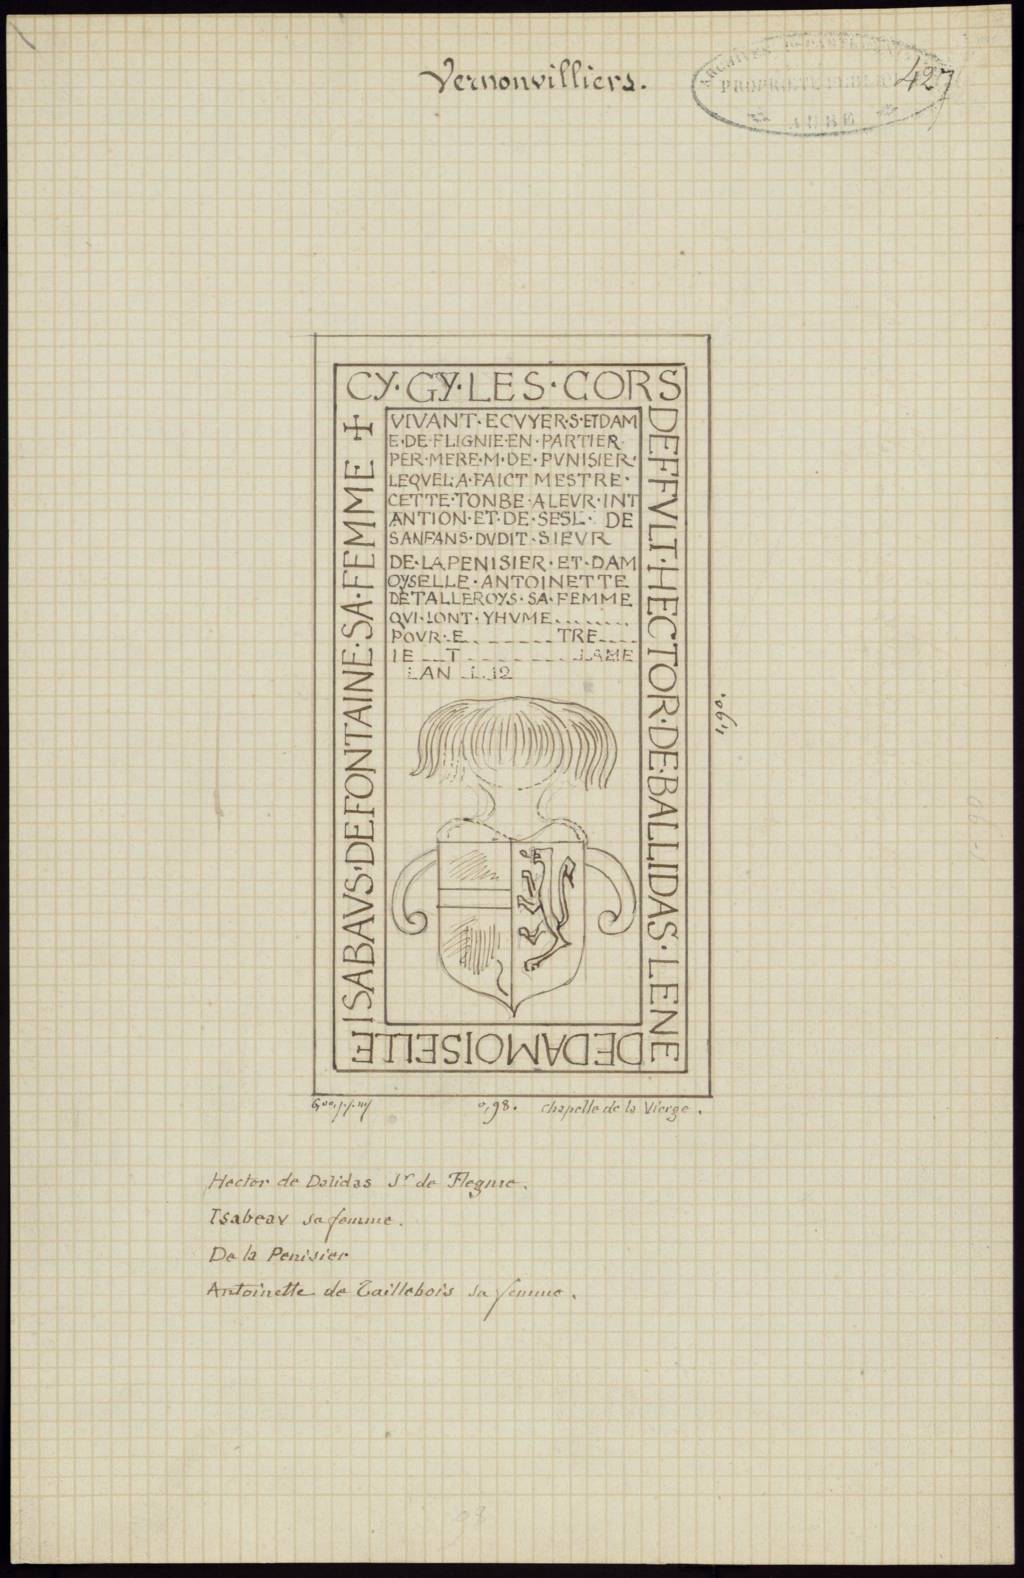 Vernonvilliers.
427
ARCHIVES
AUBE
CY·GY·LES·CORS
DEFFVLT·HECTOR·DE·BALLIDAS·LENE
DEDAMOISELLE
ISABAVS·DEFONTAINE·SA·FEMME +
VIVANT·ECVYER·S·ETDAM
E·DE·FLIGNIE·EN·PARTIER·
PER·MERE·M·DE·PVNISIER·
LEQVEL·A·FAICT MESTRE·
CETTE·TONBE·ALEVR·INT
ANTION·ET·DE·SESL· DE
SANFANS·DVDIT·SIEVR
DE·LAPENISIER·ET·DAM
OYSELLE·ANTOINETTE
DETALLEROYS·SA·FEMME
QVI·LONT·YHVME........
POVR·E_ _ _ _ _ _ TRE_ _ _
IE _ _ T _ _ _ _ _ _ LAME
LAN _L.12
1,90.
0,98. Chapelle de la Vierge.
Hector de Dalidas Sr de Flegnie.
Isabeav sa femme.
De la Penisier
Antoinette de Taillebois sa femme.